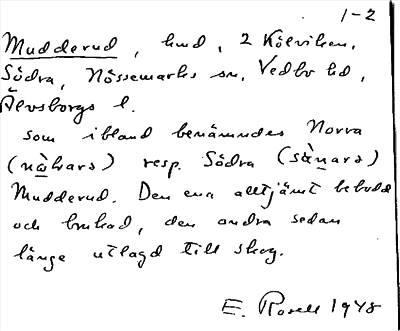 1-2
Mudderud, hmd, 2 Kölviken,
Södra, Nössemarks sn, Vedbo hd,
Älvsborgs l.
som ibland benämndes Norra
(nò̱ḷars) resp. Södra (sà̱nars)
Mudderud. Den ena alltjämt bebodd
och brukad, den andra sedan
länge utlagd till skog.
E. Rosell 1948